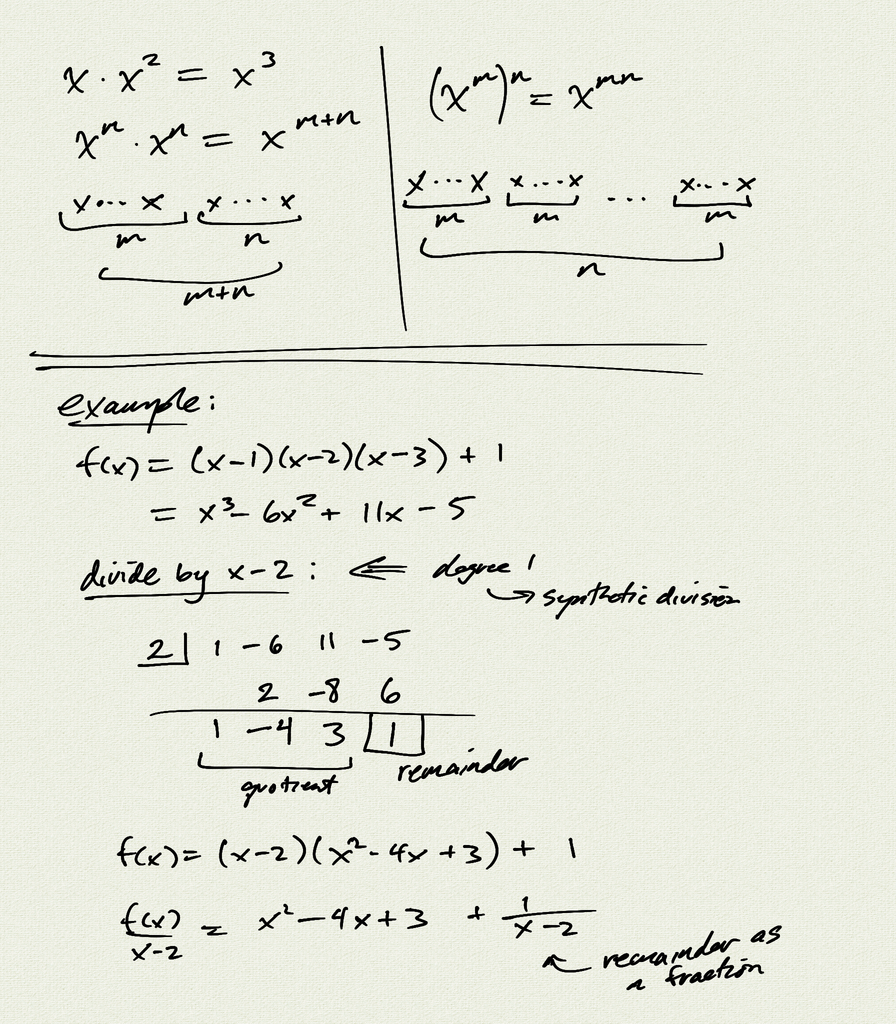 x · x² = x³
xᵐ · xⁿ = x^(m+n)
x ··· x x ··· x
m n
m+n
(xᵐ)ⁿ = xᵐⁿ
x ··· x x ··· x ... x ··· x
m m m
n
example:
f(x) = (x-1)(x-2)(x-3) + 1
= x³ - 6x² + 11x - 5
divide by x-2 : ⇐ degree 1
↪ synthetic division
2 | 1 -6 11 -5
2 -8 6
1 -4 3 1
quotient remainder
f(x) = (x-2)(x² - 4x + 3) + 1
f(x)/(x-2) = x² - 4x + 3 + 1/(x-2)
remainder as
a fraction